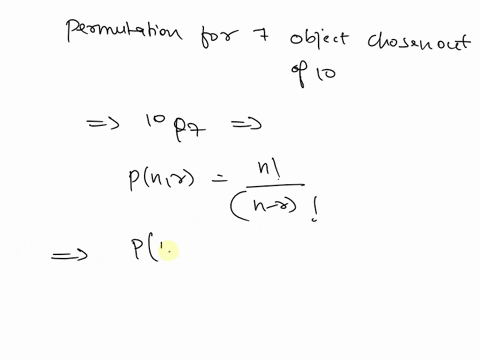 permutation for 7 object chosen out
of 10
=> ¹⁰P₇ =>
P(n,r) = n! / (n-r)!
=> P(1